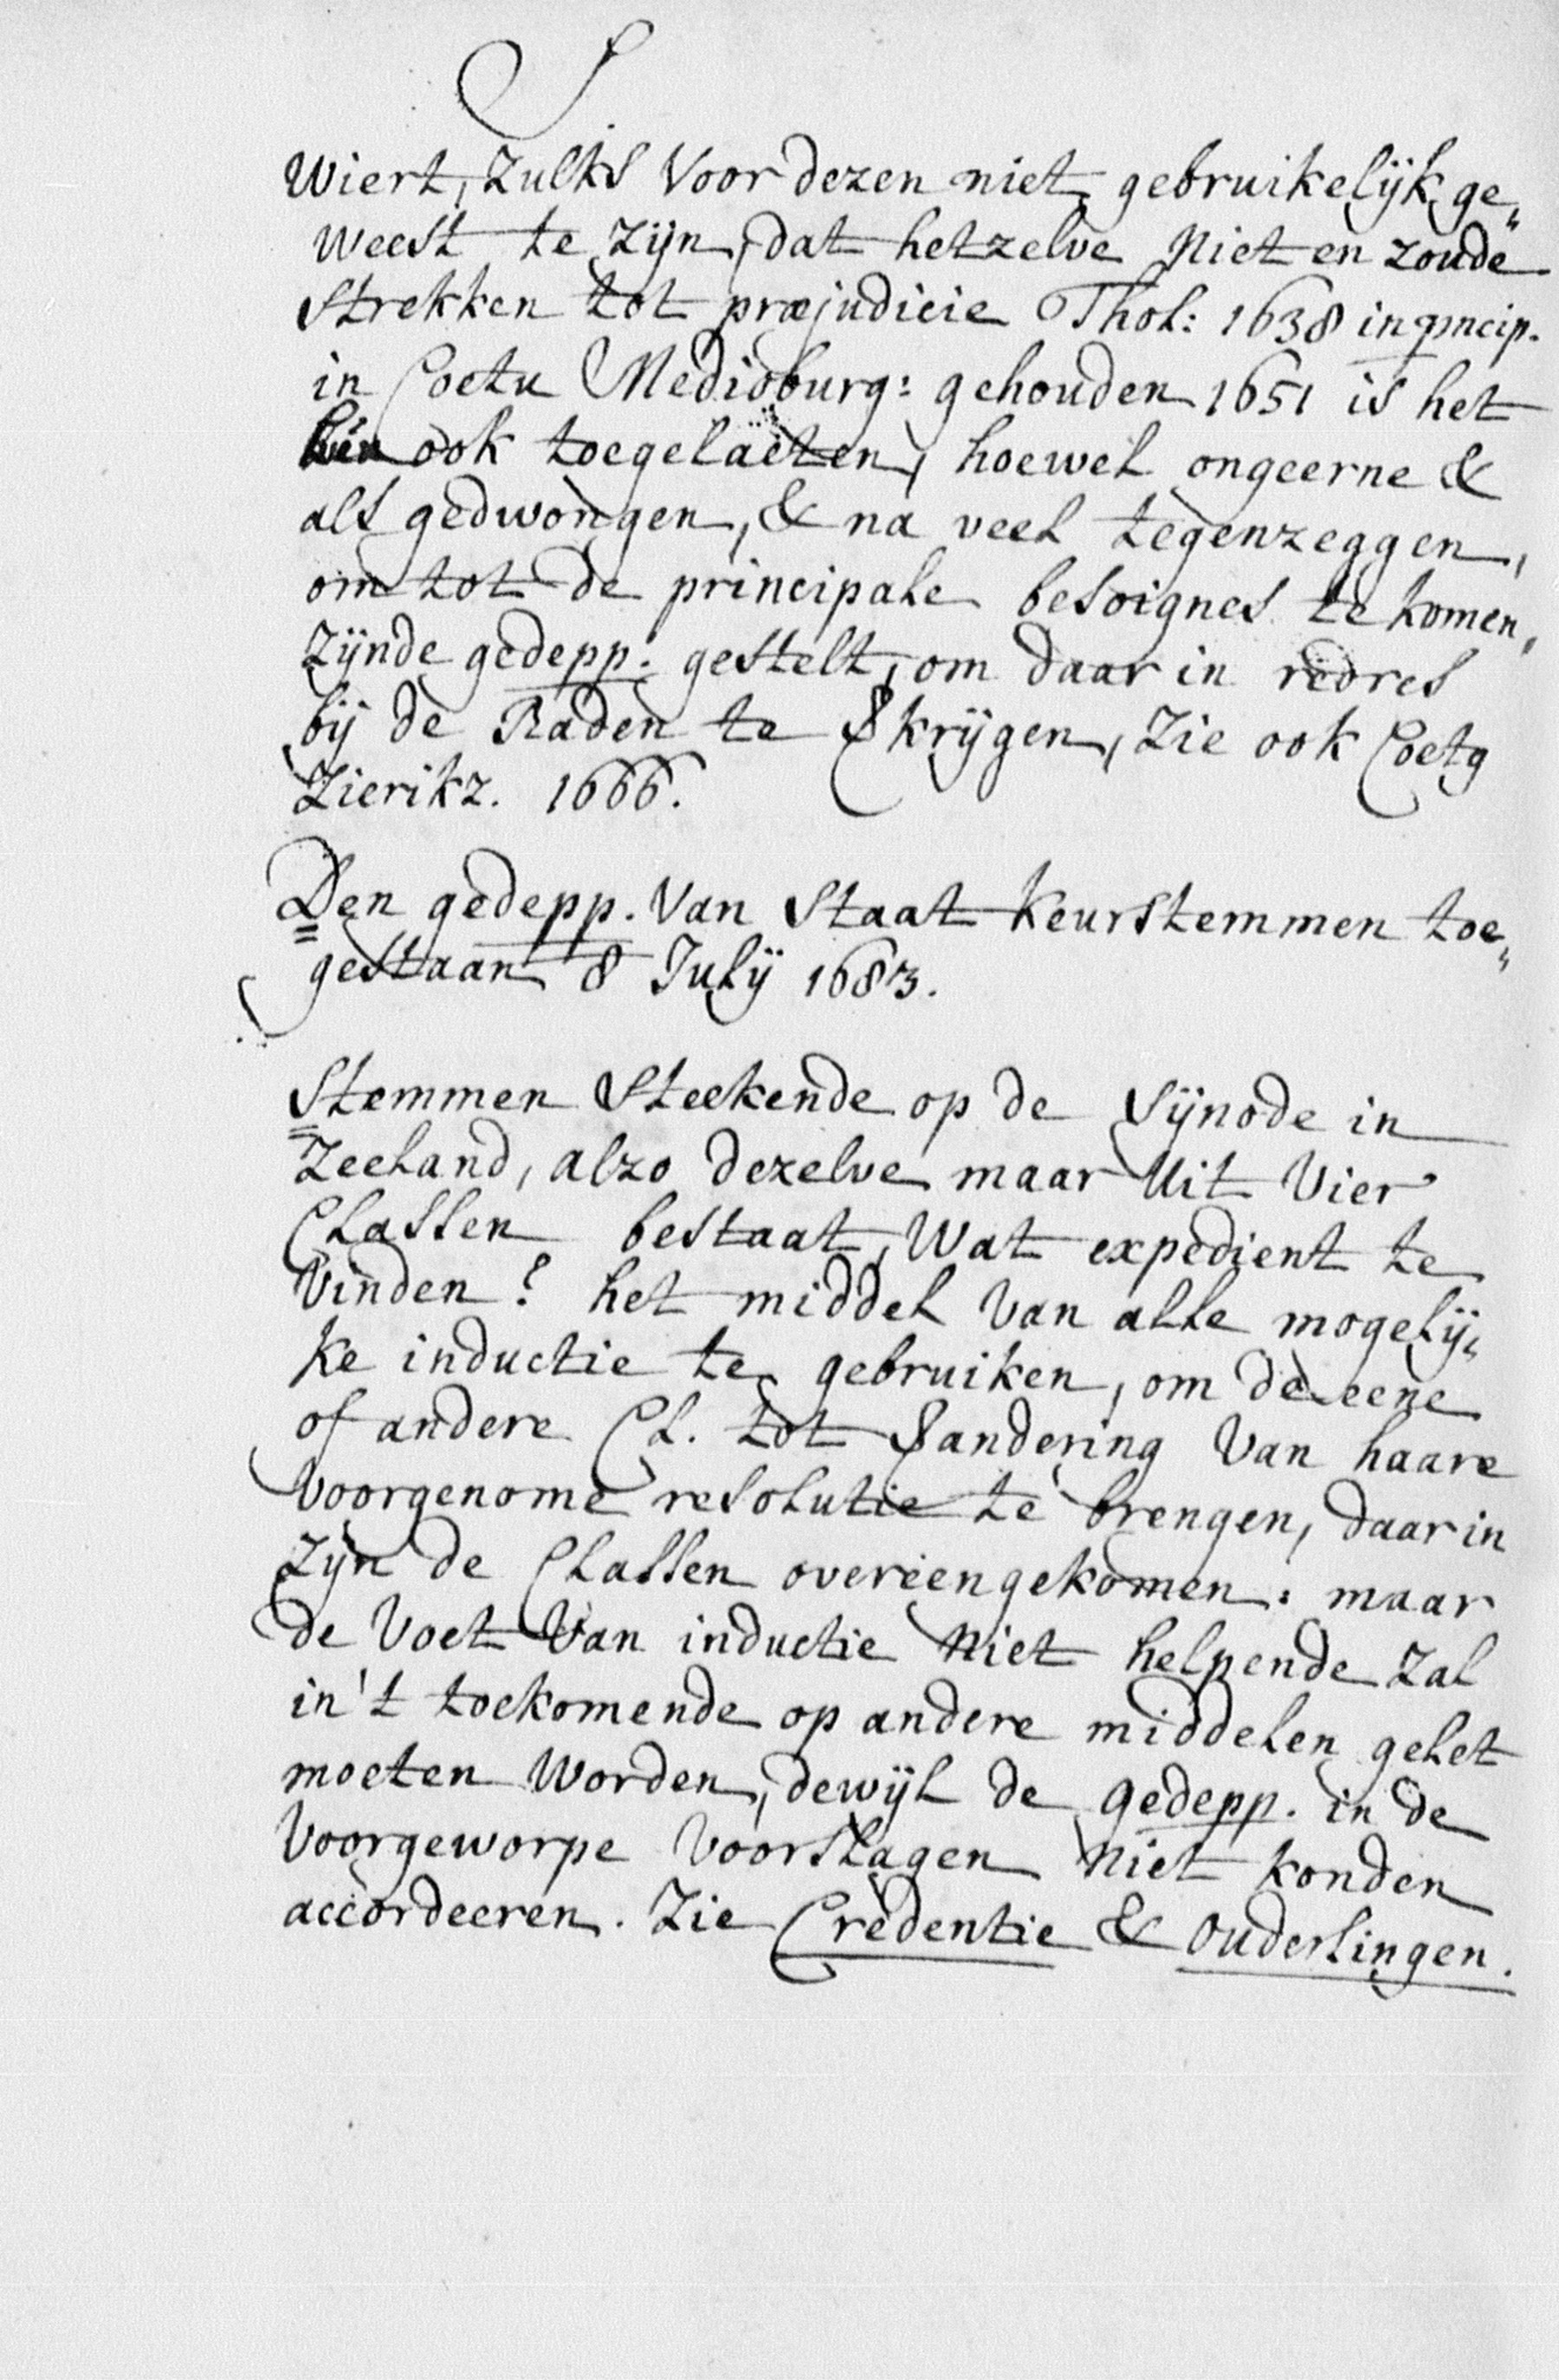 S
Wiert, zulks Voor dezen niet gebruikelijk ge„
weest te zijn, dat hetzelve Niet en zoude
strekken tot præjudicie Thol: 1638 in pncip.
in Coetu Medioburg: gehouden 1651 is het
hún ook toegelaeten, hoewel ongeerne &
als gedwongen, & na veel tegenzeggen,
om tot de principale besoignes te komen,
Zijnde gedepp. gestelt, om daar in redres
bij de Raden te krijgen, Zie ook Coetg
Zierikz. 1666.
Den gedepp. Van Staat Keurstemmen toe„
gestaan 8 Julij 1683.
Stemmen Steekende op de Sijnode in
Zeeland, alzo dezelve maar Uit Vier
Classen bestaat, Wat expedient te
Vinden? het middel Van alle mogelij„
ke inductie te gebruiken, om de eene
of andere Cl. tot andering Van haare
Voorgenome resolutie te brengen, daar in
Zijn de Classen overeengekomen: maar
de Voet Van inductie Niet helpende zal
in't toekomende op andere middelen gelet
moeten Worden, dewijl de gedepp. in de
Voorgeworpe Voorslagen Niet konden
accordeeren. Zie Credentie & Ouderlingen.